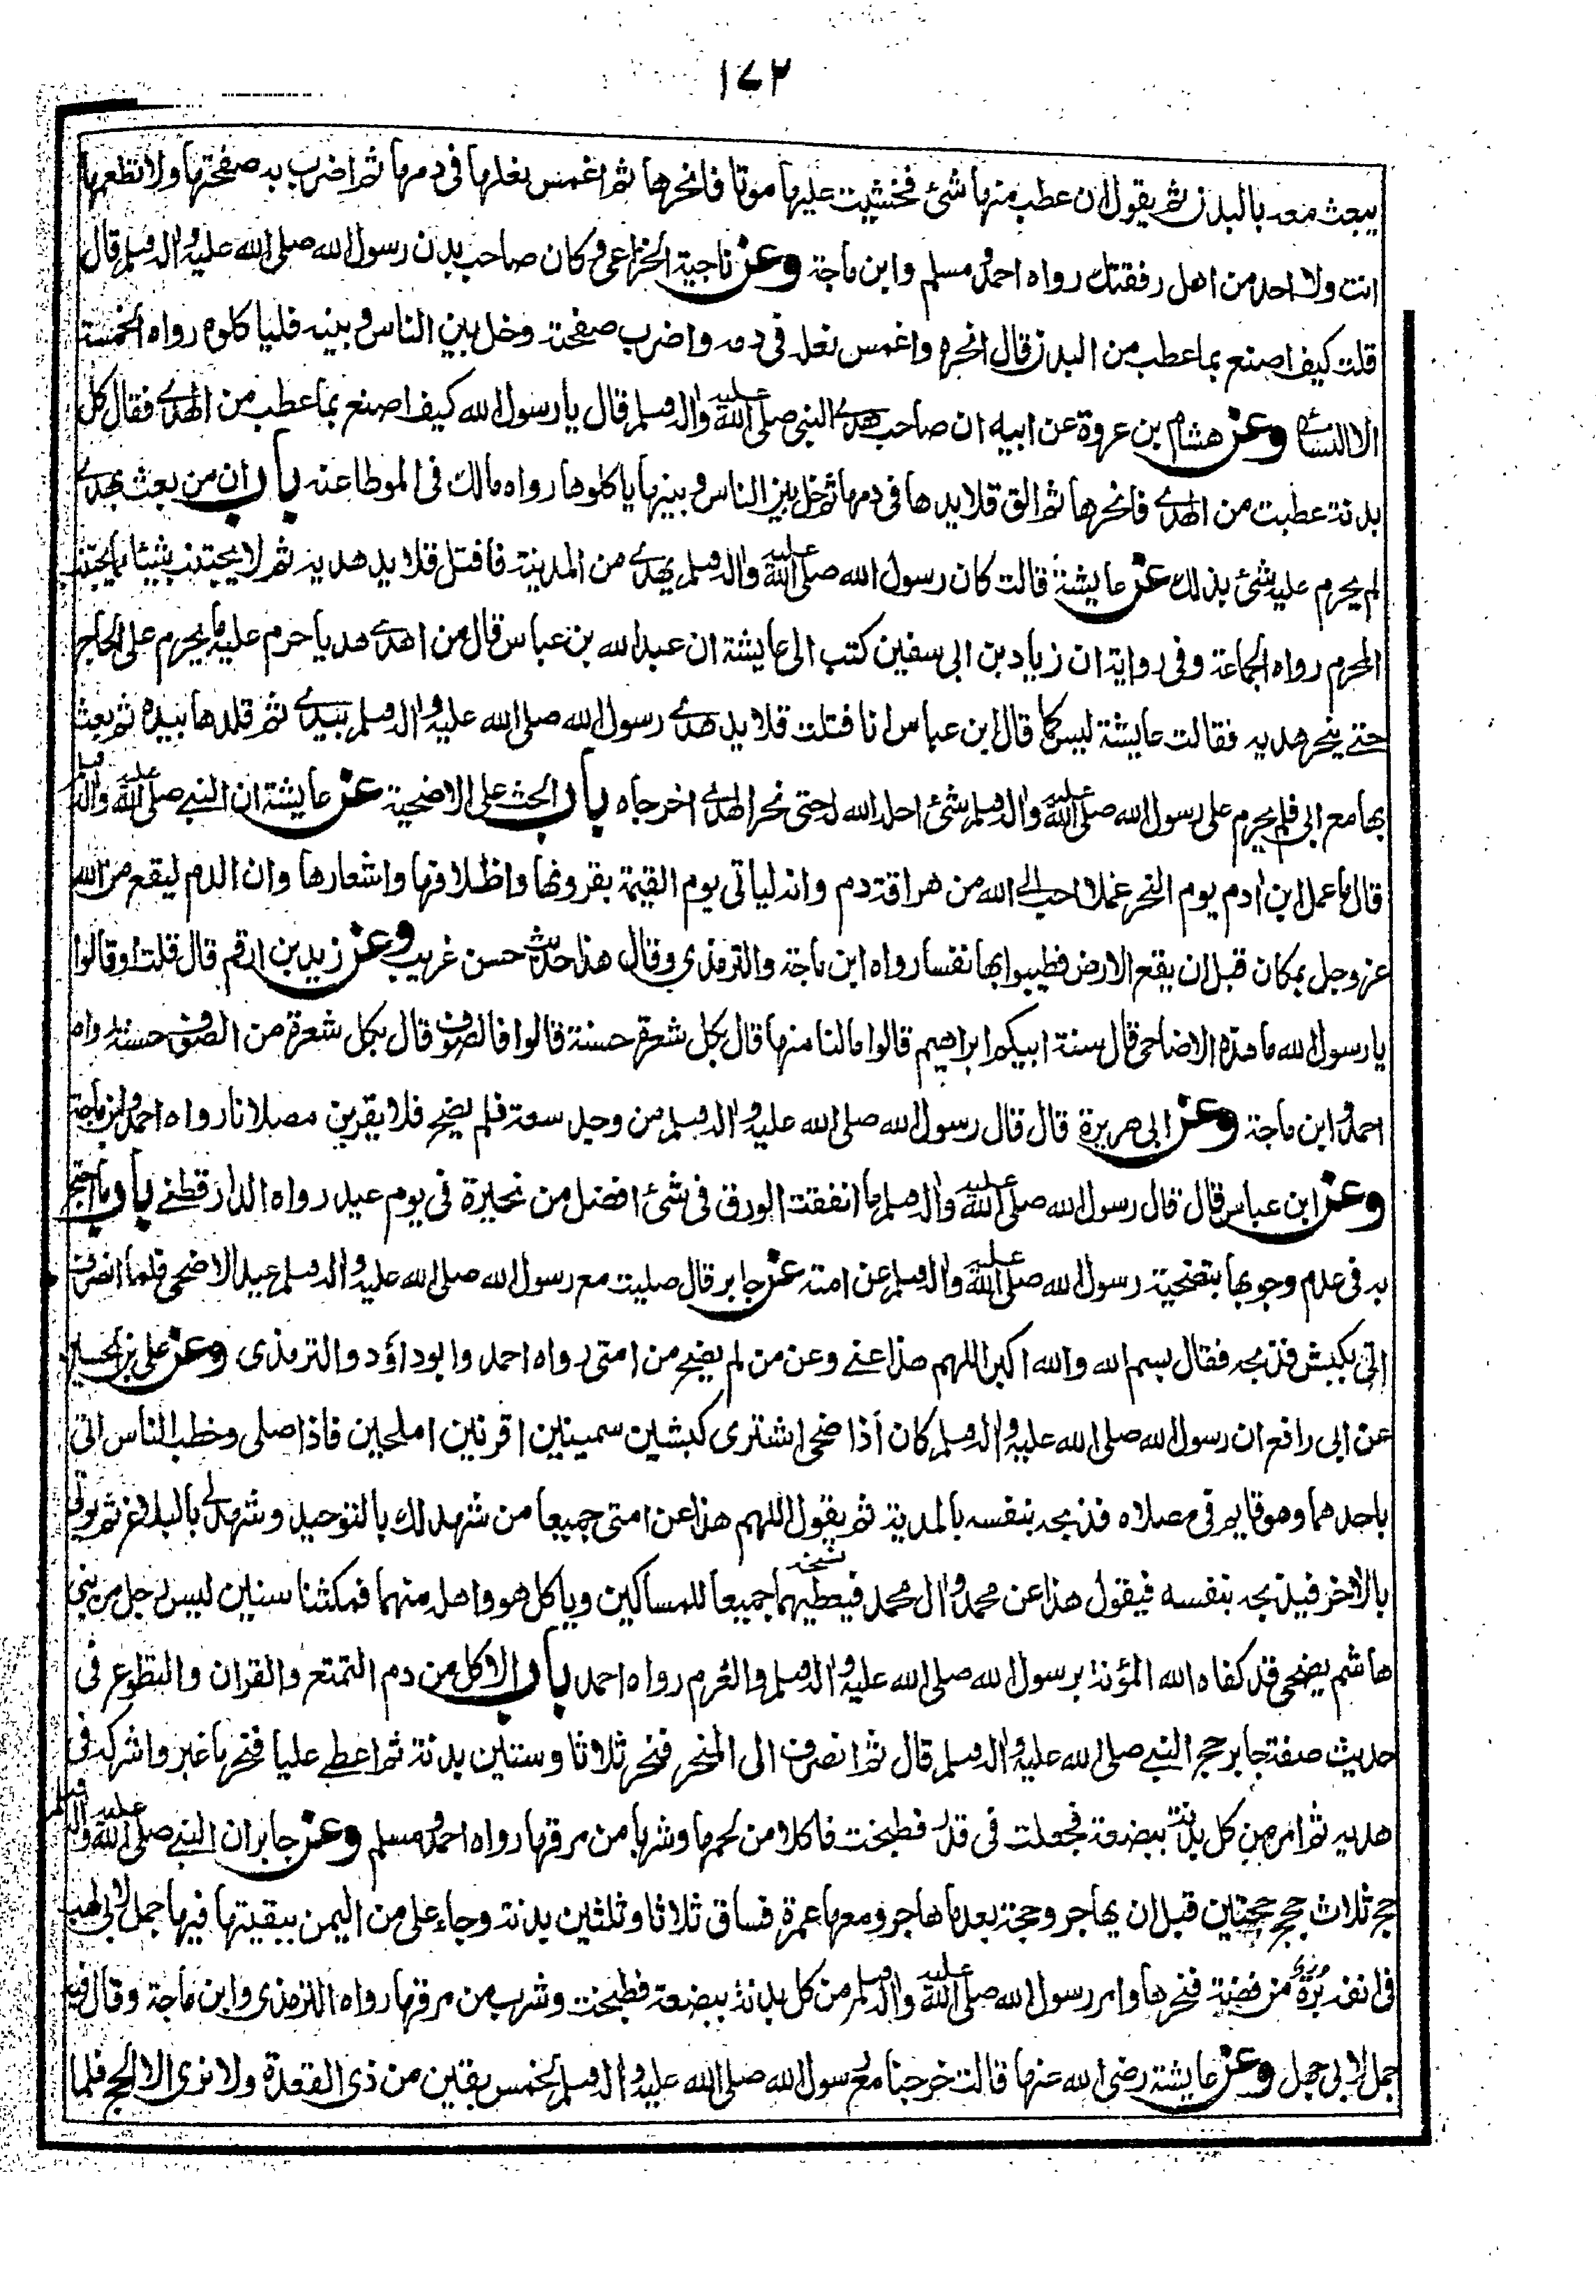 ١٧٢
يبعث معه بالبدن ثم يقول ان عطب منها شئ فخشيت عليها موتا فانحرها ثم اغمس نعلها فى دمها ثم اضرب به صفحتها ولا تطعمها
انت ولا احد من اهل رفقتك رواه احمد ومسلم وابن ماجة وعن ناجية الخزاعى وكان صاحب بدن رسول الله صلى الله عليه واٰله وسلم قال
قلت كيف اصنع بما عطب من البدن قال انحره واغمس نعله فى دمه واضرب صفحته وخل بين الناس وبينه فليأكلوه رواه الخمسة
الا النسائے وعن هشام بن عروة عن ابيه ان صاحب هدے النبى صلى الله عليه واٰله وسلم قال يا رسول الله كيف اصنع بما عطب من الهدے فقال كل
بدنة عطبت من الهدے فانحرها ثم الق قلايدها فى دمها ثم خل بين الناس وبينها ياكلوها رواه مالك فى الموطا عنه باب ان من بعث بهدے
لم يحرم عليه شئ بذلك عن عايشة قالت كان رسول الله صلى الله عليه واٰله وسلم يهدے من المدينة فافتل قلايد هديه ثم لا يجتنب شيئا مما يجتنب
المحرم رواه الجماعة وفى رواية ان زياد بن ابى سفين كتب الى عايشة ان عبد الله بن عباس قال من اهدے هديا حرم عليه ما يحرم على الحاج
حتے ينحر هديه فقالت عايشة ليس كما قال ابن عباس انا فتلت قلايد هدے رسول الله صلى الله عليه واٰله وسلم بيدے ثم قلدها بيده ثم بعث
بها مع ابى فلم يحرم على رسول الله صلى الله عليه واٰله وسلم شئ احله الله له حتى نحر الهدے اخرجاه باب الحث على الاضحية عن عايشة ان النبے صلى الله عليه واٰله وسلم
قال ما عمل ابن اٰدم يوم النحر عملا احب الے الله من هراقة دم وانه لياتى يوم القيمة بقرونها واظلافها واشعارها وان الدم ليقع من الله
عز وجل بمكان قبل ان يقع الارض فطيبوا بها نفسا رواه ابن ماجة والترمذي وقال هذا حديث حسن غريب وعن زيد بن ارقم قال قلت او قالوا
يا رسول الله ما هذه الاضاحى قال سنة ابيكم ابراهيم قالوا ما لنا منها قال بكل شعرة حسنة قالوا فالصوف قال بكل شعرة من الصوف حسنة رواه
احمد وابن ماجة وعن ابى هريرة قال قال رسول الله صلى الله عليه واٰله وسلم من وجد سعة فلم يضح فلا يقربن مصلانا رواه احمد وابن ماجة
وعن ابن عباس قال قال رسول الله صلى الله عليه واٰله وسلم ما انفقت الورق فى شئ افضل من نحيرة فى يوم عيد رواه الدارقطنے باب ما احتج
به فى عدم وجوبها بتضحية رسول الله صلى الله عليه واٰله وسلم عن امته عن جابر قال صليت مع رسول الله صلى الله عليه واٰله وسلم عيد الاضحى فلما انصرف
اتى بكبش فذبحه فقال بسم الله والله اكبر اللهم هذا عنے وعن من لم يضح من امتى رواه احمد وابو داؤد والترمذى وعن على بن الحسين
عن ابى رافع ان رسول الله صلى الله عليه واٰله وسلم كان اذا ضحى اشترى كبشين سمينين اقرنين املحين فاذا صلى وخطب الناس اتى
باحدهما وهو قايم فى مصلاه فذبحه بنفسه بالمدية ثم يقول اللهم هذا عن امتى جميعا من شهد لك بالتوحيد وشهد لے بالبلاغ ثم يوتى
بالاٰخر فيذبحه بنفسه فيقول هذا عن محمد واٰل محمد فيعطيهما جميعا للمساكين وياكل هو واهله منهما فمكثنا سنين ليس رجل من بنى
هاشم يضحى قد كفاه الله المؤنة برسول الله صلى الله عليه واٰله وسلم والغرم رواه احمد باب الاكل من دم التمتع والقران والتطوع فى
حديث صفة جابر حج النبے صلى الله عليه واٰله وسلم قال ثم انصرف الى المنحر فنحر ثلاثا وستين بدنة ثم اعطے عليا فنحر ما غبر واشركه فى
هديه ثم امر من كل بدنة ببضعة فجعلت فى قدر فطبخت فاكلا من لحمها وشربا من مرقها رواه احمد ومسلم وعن جابر ان النبے صلى الله عليه واٰله وسلم
حج ثلاث حجج حجتين قبل ان يهاجر وحجة بعد ما هاجر ومعها عمرة فساق ثلاثا وثلثين بدنة وجاء على من اليمن ببقيتها فيها جمل لابى لهب
فى انفه برة من فضة فنحرها وامر رسول الله صلى الله عليه واٰله وسلم من كل بدنة ببضعة فطبخت وشرب من مرقها رواه الترمذى وابن ماجة وقال فيه
جمل لابى جهل وعن عايشة رضى الله عنها قالت خرجنا مع رسول الله صلى الله عليه واٰله وسلم لخمس بقين من ذى القعدة ولا نرى الا الحج فلما